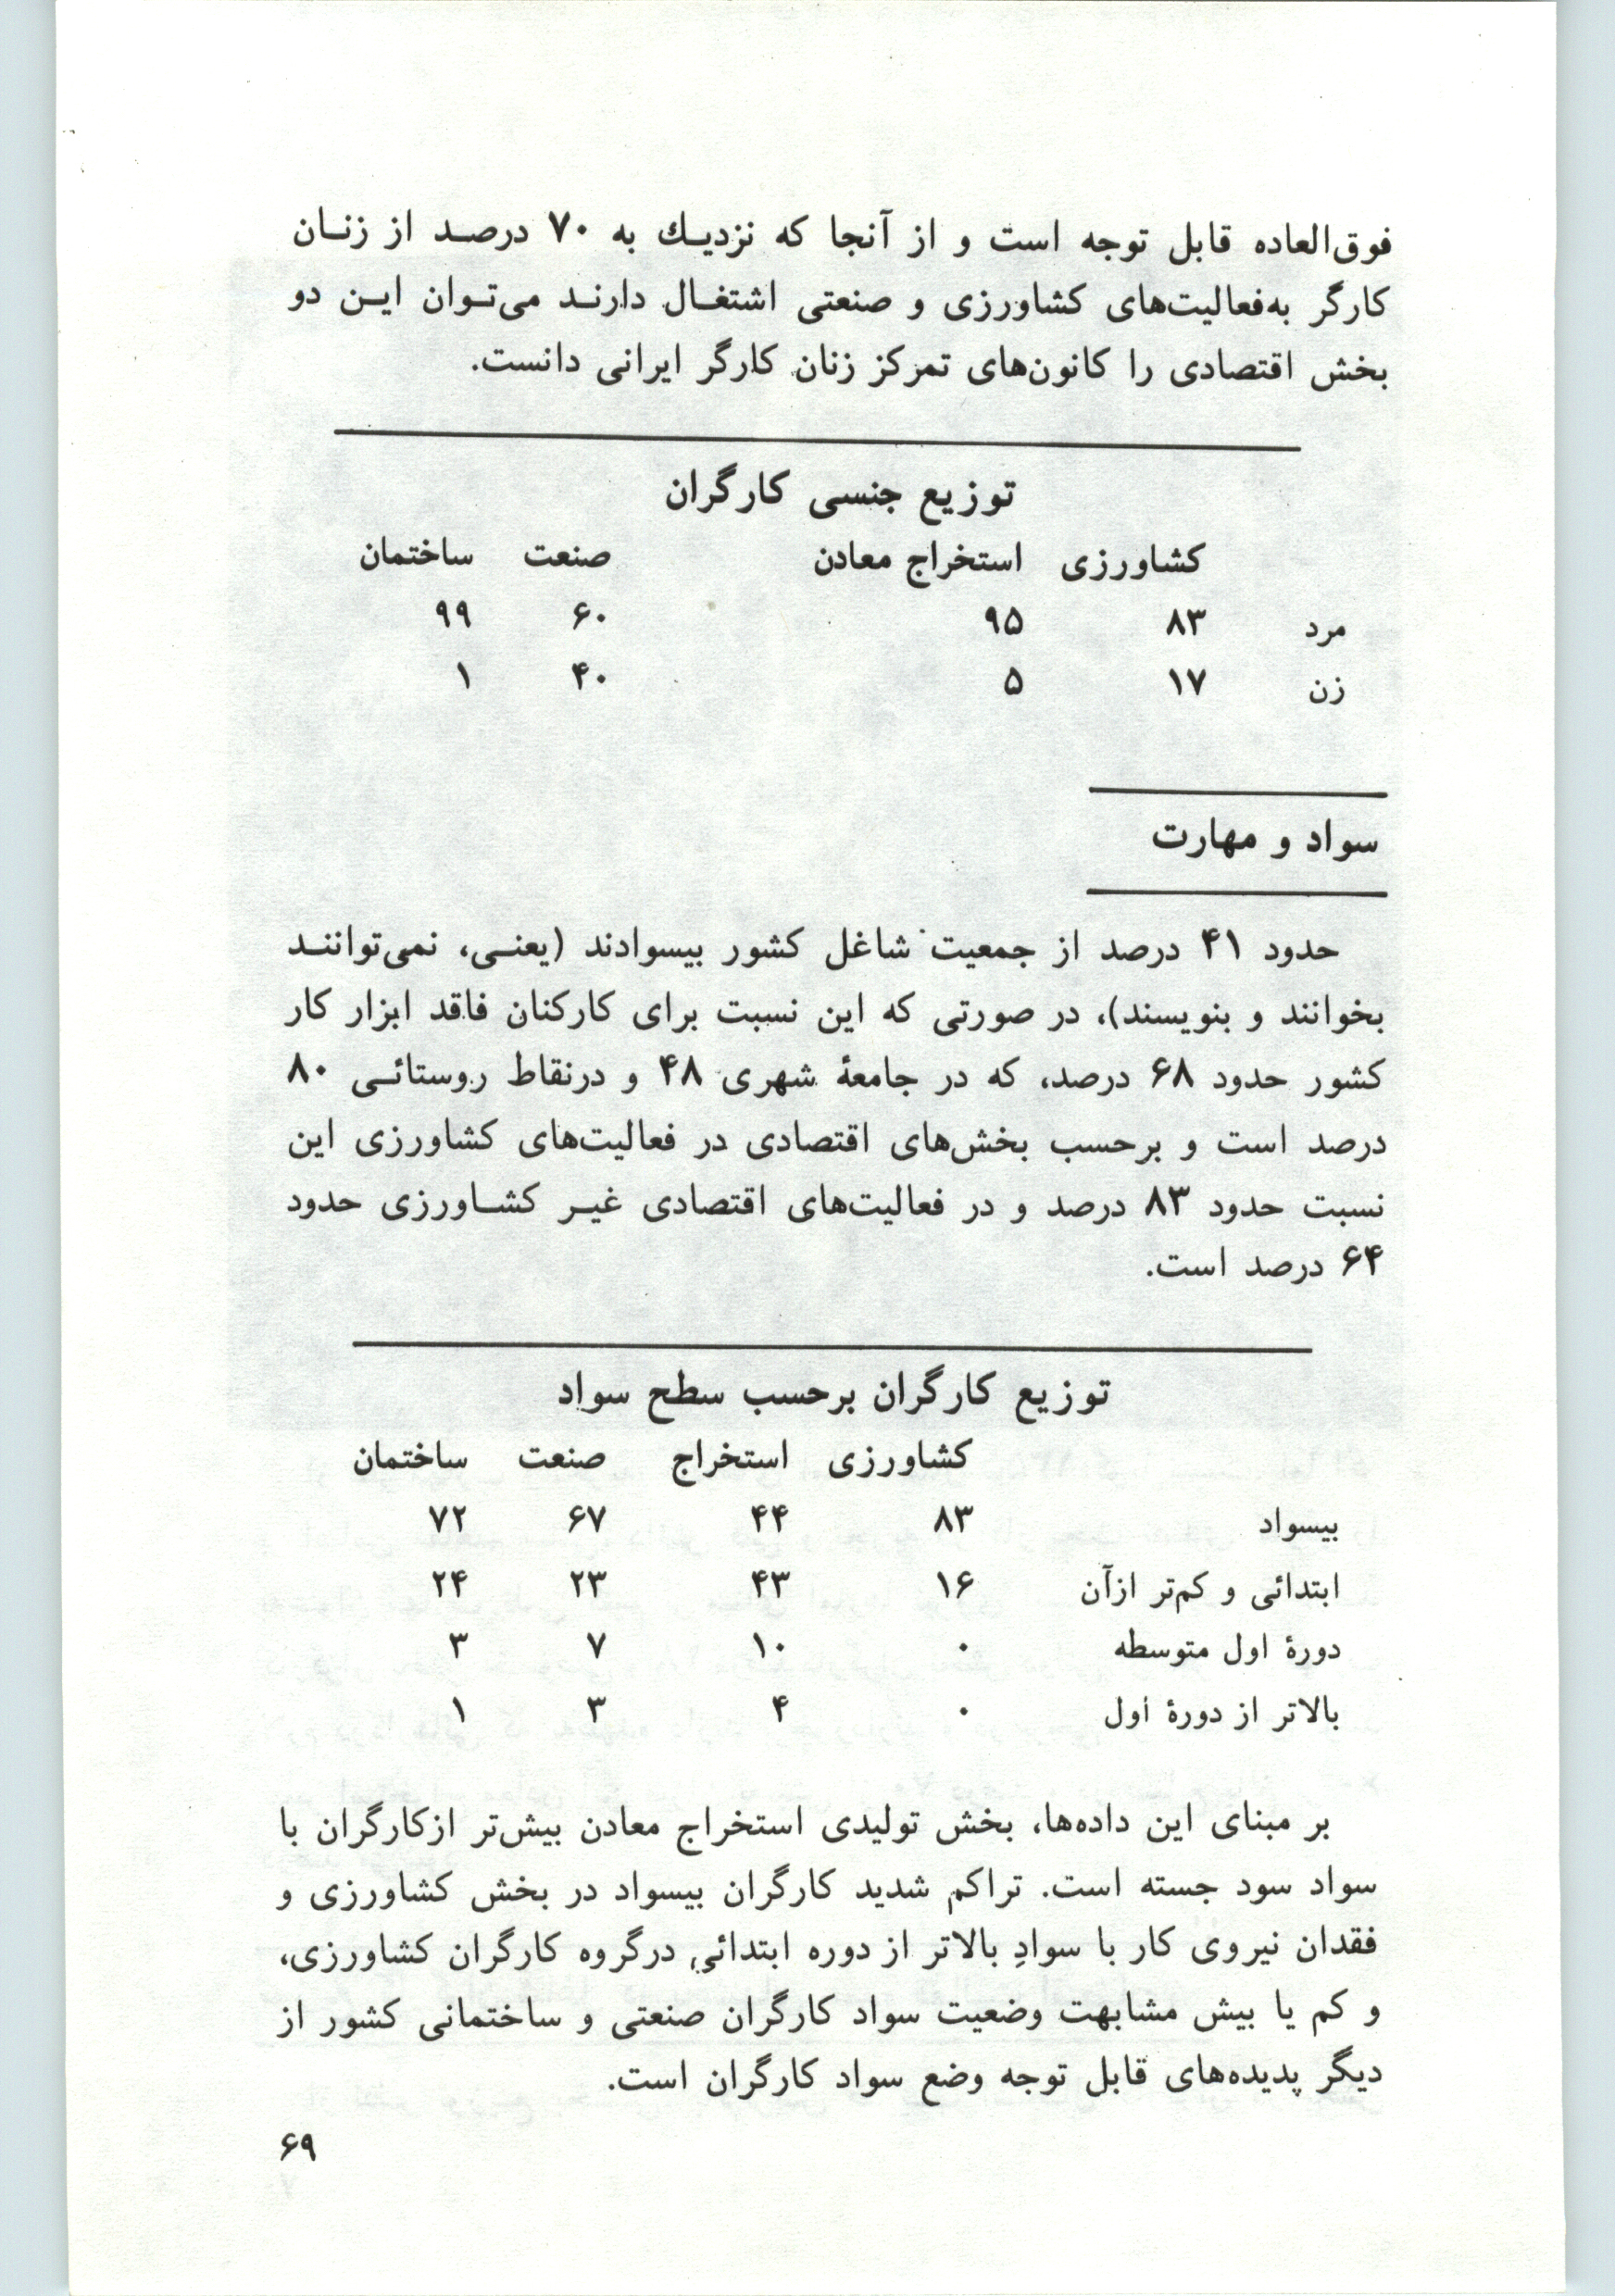 فوق‌العاده قابل توجه است و از آنجا که نزدیـك به ۷۰ درصـد از زنـان
کارگر به‌فعالیت‌های کشاورزی و صنعتی اشتغـال دارنـد می‌تـوان ایـن دو
بخش اقتصادی را کانون‌های تمرکز زنان کارگر ایرانی دانست.
توزیع جنسی کارگران
کشاورزی استخراج معادن صنعت ساختمان
مرد ۸۳ ۹۵ ۶۰ ۹۹
زن ۱۷ ۵ ۴۰ ۱
سواد و مهارت
حدود ۴۱ درصد از جمعیت شاغل کشور بیسوادند (یعنـی، نمی‌تواننـد
بخوانند و بنویسند)، در صورتی که این نسبت برای کارکنان فاقد ابزار کار
کشور حدود ۶۸ درصد، که در جامعۀ شهری ۴۸ و درنقاط روستائـی ۸۰
درصد است و برحسب بخش‌های اقتصادی در فعالیت‌های کشاورزی این
نسبت حدود ۸۳ درصد و در فعالیت‌های اقتصادی غیـر کشـاورزی حدود
۶۴ درصد است.
توزیع کارگران برحسب سطح سواد
کشاورزی استخراج صنعت ساختمان
بیسواد ۸۳ ۴۴ ۶۷ ۷۲
ابتدائی و کم‌تر ازآن ۱۶ ۴۳ ۲۳ ۲۴
دورۀ اول متوسطه ۰ ۱۰ ۷ ۳
بالاتر از دورۀ اول ۰ ۴ ۳ ۱
بر مبنای این داده‌ها، بخش تولیدی استخراج معادن بیش‌تر ازکارگران با
سواد سود جسته است. تراکم شدید کارگران بیسواد در بخش کشاورزی و
فقدان نیروی کار با سوادِ بالاتر از دوره ابتدائی درگروه کارگران کشاورزی،
و کم یا بیش مشابهت وضعیت سواد کارگران صنعتی و ساختمانی کشور از
دیگر پدیده‌های قابل توجه وضع سواد کارگران است.
۶۹